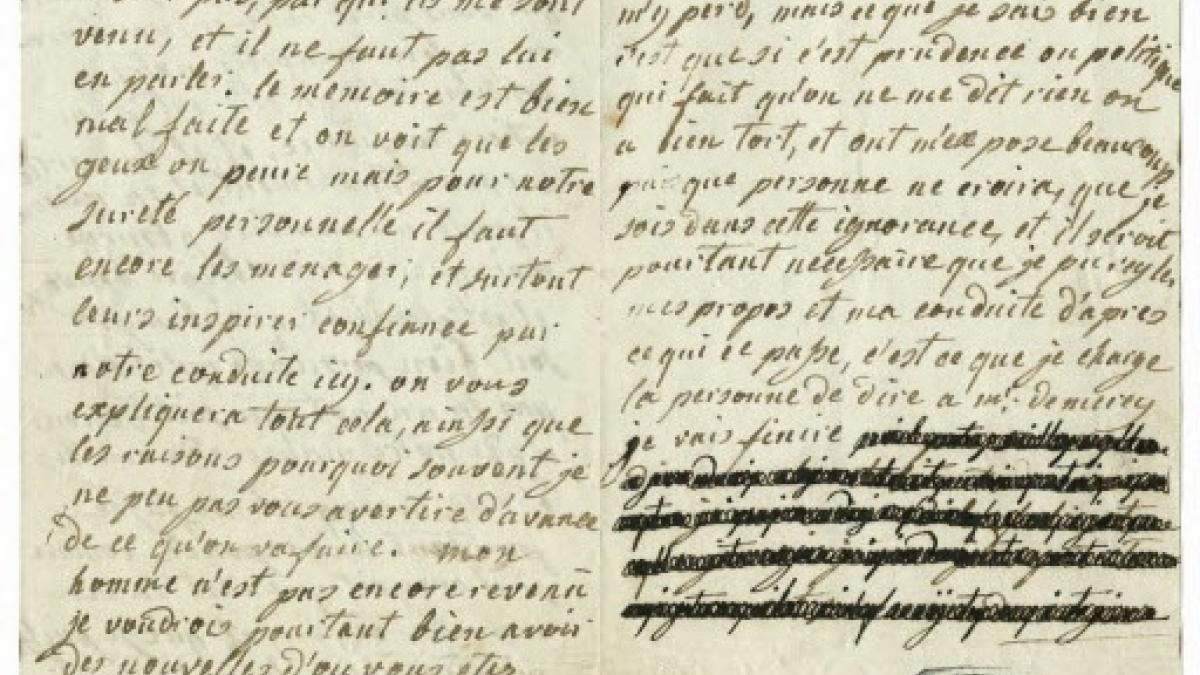 pas, par qui ils me sont
venu, et il ne faut pas lui
en parler. le mémoire est bien
mal faite et on voit que les
geux on peure mais pour notre
sureté personnelle il faut
encore les menager, et surtout
leurs inspirer confience par
notre conduite icy. on vous
expliquera tout cela, ainsi que
les raisons pourquoi souvent je
ne peu pas vous avertire d'avance
de ce qu'on va faire. mon
homme n'est pas encore revenû
je voudrois pourtant bien avoir
des nouvelles d'ou vous êtes
m'y perd, mais ce que je sais bien
c'est que si c'est prudence ou politique
qui fait qu'on ne me dit rien on
a bien tort, et ont m'expose beaucoup
puis que personne ne croira, que je
sois dans cette ignorance, et il seroit
pourtant necessaire que je pu regler
mes propos et ma conduite d'apres
ce qui ce passe, c'est ce que je charge
la personne de dire a mr. de mercy
je vais finire